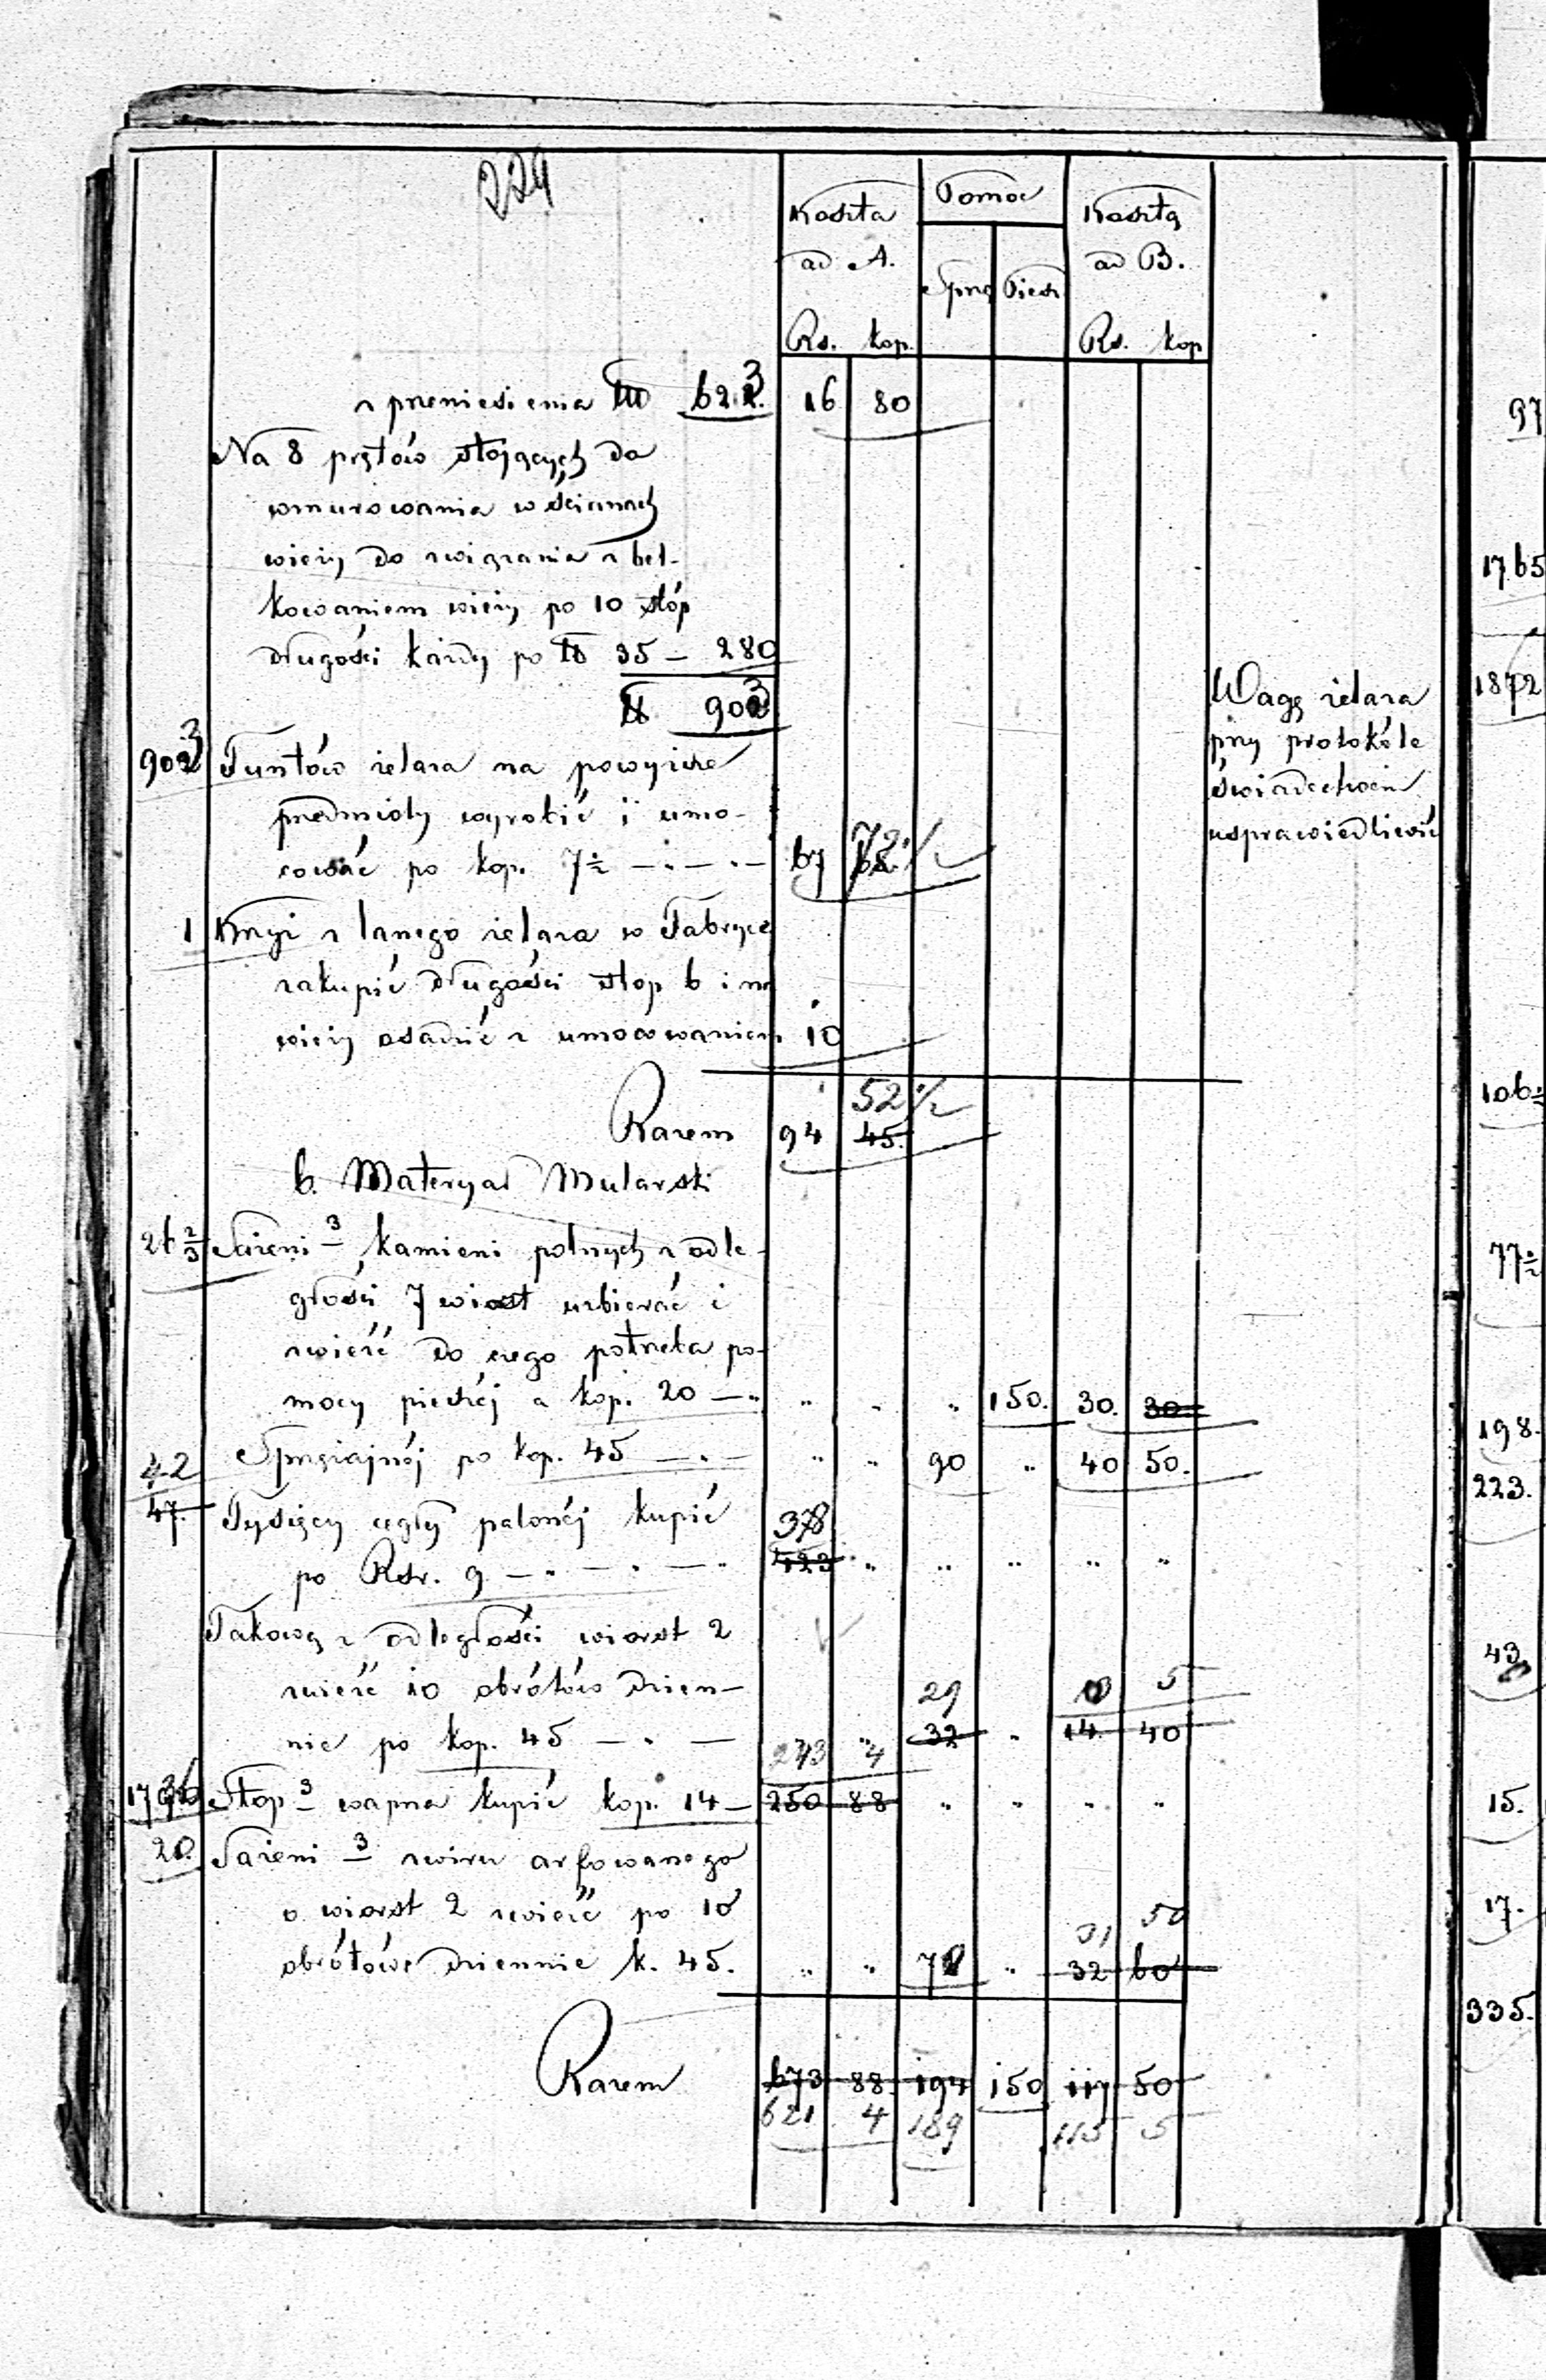 224
Koszta
ad A.
Rs. kop.
Pomoc
Sprzę Piesz
Koszta
ad B.
Rs. kop
z przeniesienia ℔ 623. 16 80
Na 8 prętów stojących do
wmurowania w ścianach
wieży do związania z bel-
kowaniem wieży po 10 stóp
długości każdy po ℔ 35 – 280
℔ 903
903 Funtów żelaza na powyższe
przedmioty wyrobić i umo-
cować po kop. 7½ 67 72½
Wagę żelaza
przy protokóle
świadectwem
usprawiedliwić
1 Krzyż z lanego żelaza w Fabryce
zakupić długości stop 6 i na
wieży osadzić z umocowaniem 10
52½
Razem 94 45.
b. Materyał Mularski
Sążeni 3 kamieni polnych z odle-
głości 7 wiorst uzbierać i
zwieźć do czego potrzeba po-
mocy pieszéj a kop. 20 – „ „ „ „ 150. 30. 30.
Sprzężajnéj po kop. 45 – „ „ 90 „ 40 50.
42
47. Tysięcy cegły palonéj kupić 378
po Rsr. 9 423 „ „ „ „ „
Takową z odległości wiorst 2
zwieźć 10 obrótów dzien- 29 5
nie po kop. 45 „ 32 „ 14. 40
243 4
1736 Stop 3 wapna kupić kop. 14 – 250 88 „ „ „ „
20. Sążeni 3 żwiru arfowanego
o wiorst 2 zwieźć po 10 31 50
obrótów dziennie k. 45. „ „ 70 „ 32 60
Razem 673 88. 194 150 117 50
621 4 189 115 5
97
1765
1872
106½
77½
198.
223.
43
15.
17.
335.